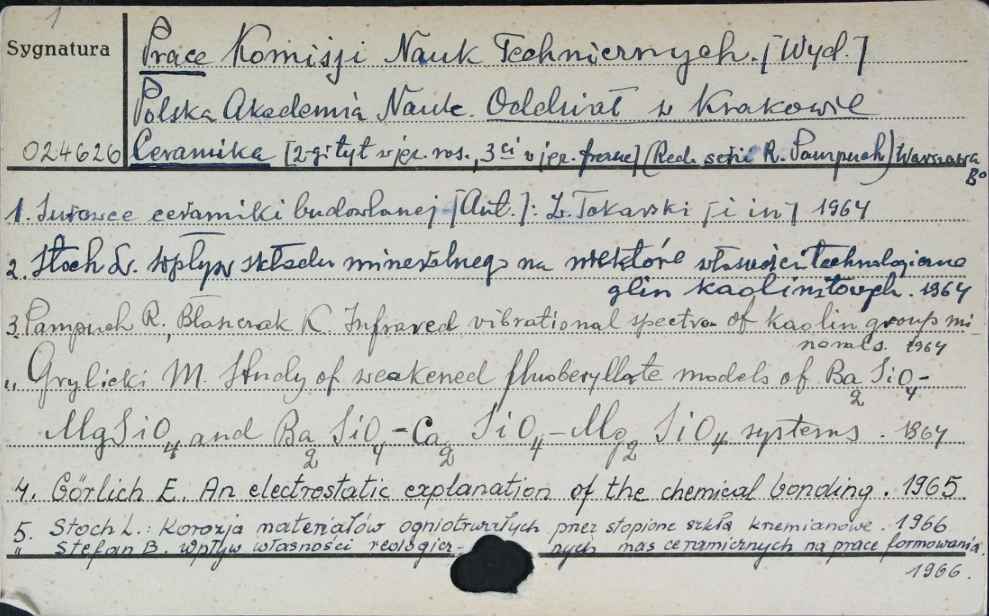 1
Sygnatura
Prace Komisji Nauk Technicznych. [Wyd.]
Polska Akademia Nauk. Oddział w Krakowie
024626
Ceramika [2-gi tyt w jęz. ros., 3ci w jęz. franc] (Red. serii R. Pampuch) Warszawa
1. Surowce ceramiki budowlanej [Aut.]: Z. Tokarski [i in] 1964
2. Stoch L. Wpływ składu mineralnego na niektóre własności technologiczne
glin kaolinitowych. 1964
3. Pampuch R., Błaszczak K Infrared vibrational spectra of kaolin group mi-
nerals. 1964
„ Grylicki M Study of weakened fluoberyllate models of Ba2SiO4-
MgSiO4 and Ba2SiO4-Ca2SiO4-Mg2SiO4 systems. 1964
4. Görlich E. An electrostatic explanation of the chemical bonding. 1965.
5. Stoch L.: Korozja materiałów ogniotrwałych przez stopione szkła krzemianowe. 1966
„ Stefan B. Wpływ własności reologicz- nych mas ceramicznych na prace formowania.
1966.